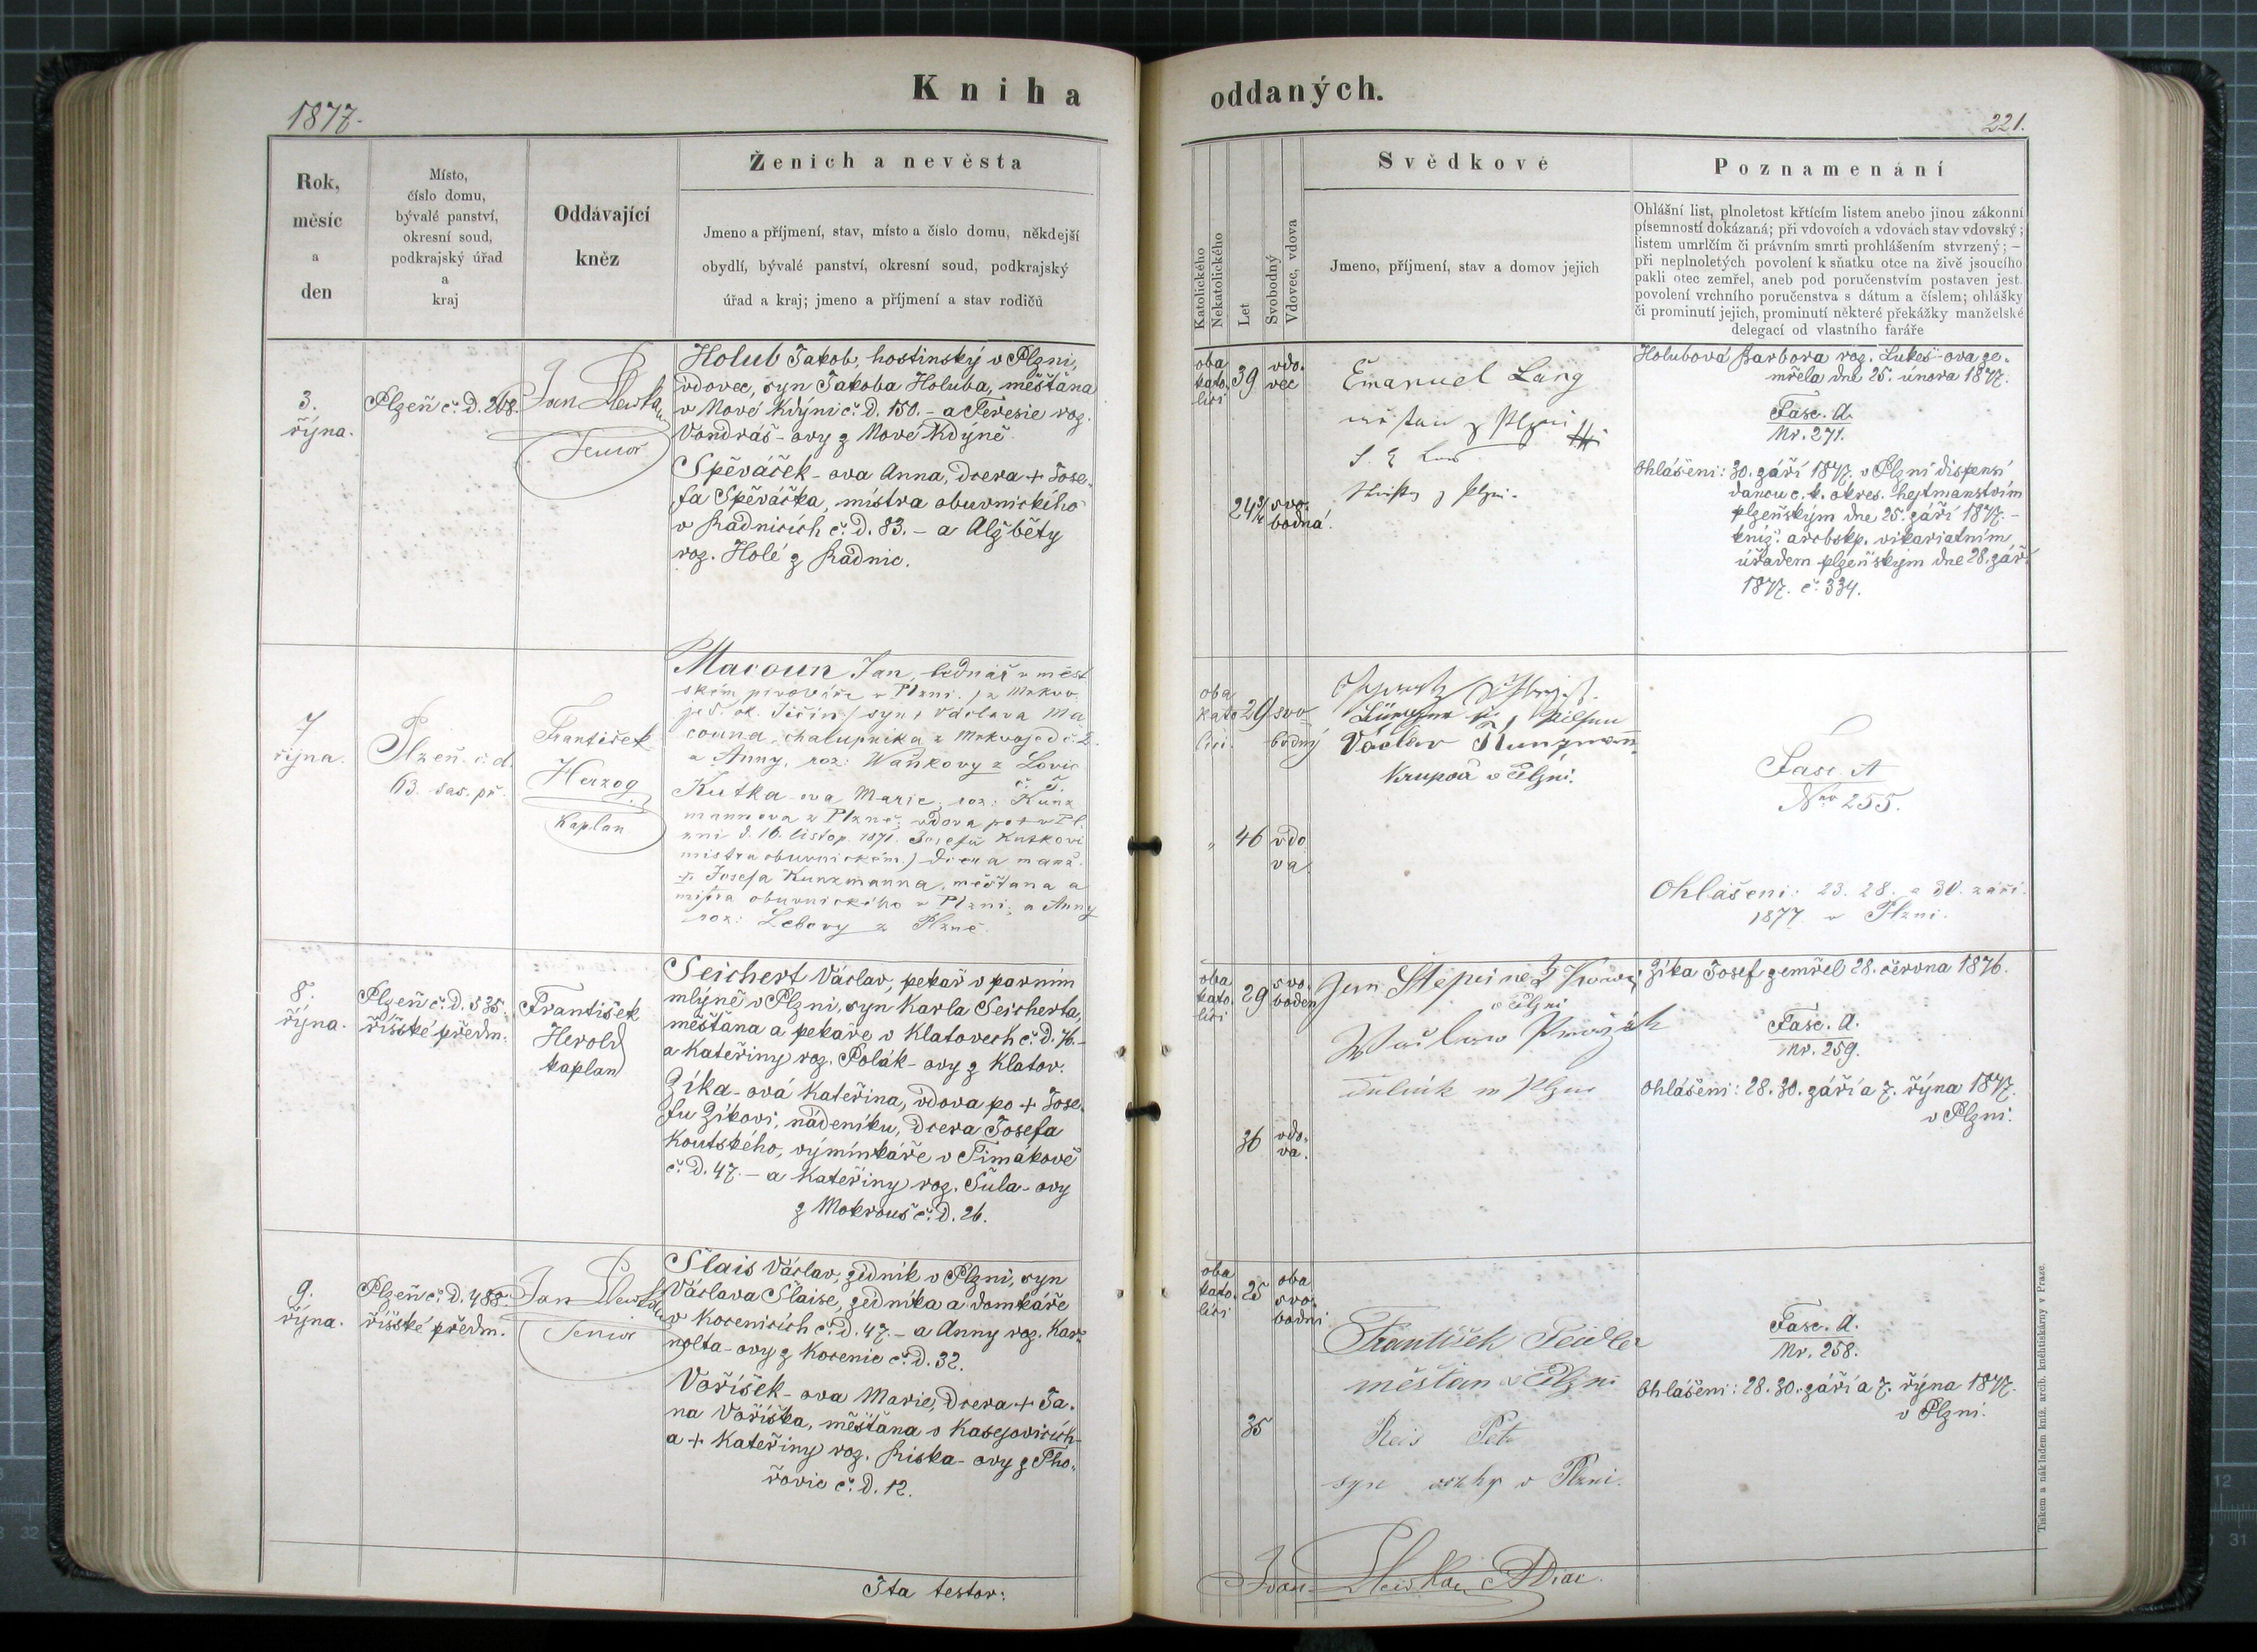 Kniha
oddaných.
1877.
221.
Rok,
měsíc
a
den
Místo,
číslo domu,
bývalé panství,
okresní soud,
podkrajský úřad
a
kraj
Oddávající
kněz
Ženich a nevěsta
Jmeno a příjmení, stav, místo a číslo domu, někdejší
obydlí, bývalé panství, okresní soud, podkrajský
úřad a kraj; jmeno a příjmení a stav rodičů
Katolického
Nekatolického
Let
Svobodný
Vdovec, vdova
Svědkové
Jmeno, příjmení, stav a domov jejich
Poznamenání
Ohlášní list, plnoletost křtícím listem anebo jinou zákonní
písemností dokázaná; při vdovcích a vdovách stav vdovský;
listem umrlčím či právním smrti prohlášením stvrzený; —
při neplnoletých povolení k sňatku otce na živě jsoucího
pakli otec zemřel, aneb pod poručenstvím postaven jest
povolení vrchního poručenstva s dátum a číslem; ohlášky
či prominutí jejich, prominutí některé překážky manželské
delegací od vlastního faráře
3.
října.
Plzeň č. d. 268.
Jan
Senior
Holub Jakob, hostinský v Plzni,
vdovec, syn Jakoba Holuba, měšťana
v Nové Kdýni č. d. 150. - a Teresie roz.
Vondráš-ovy z Nové Kdýně.
Spěváček-ova Anna, dcera + Jose-
fa Spěváčka, mistra obuvnického
v Radnicích č. d. 83. - a Alžběty
roz. Holé z Radnic.
oba
kato-
líci
39
vdo-
vec
24
svo-
bodná.
Emanuel Lang
z Plzni
z Plzni.
Holubová Barbora roz. Lukeš-ova ze-
mřela dne 25. února 1877.
Fasc. A.
Nr. 271.
Ohlášeni: 30. září 1877. v Plzni dispensí
danou c. k. okres. hejtmanstvím
plzeňským dne 25. září 1877. -
kníž. arcbskp. vikariatním
úřadem plzeňským dne 28. září
1877. č. 334.
7
října.
Plzeň č. d.
63. sas. př.
František
Herzog
Kaplan
Macoun Jan, bednář v měst-
ském pivováře v Plzni, z Mrkvo-
jed. ok. Jičín, syn Václava Ma-
couna, chalupníka z Mrkvojed č. 2
a Anny, roz: Waňkovy z Lovic
Kutka-ova Marie, roz: Kunz-
mannova z Plzně; vdova po + v Pl-
zni d. 16. listop. 1871. Josefu Kutkovi
mistru obuvnickém.) dcera manž.
+ Josefa Kunzmanna, měšťana a
mistra obuvnického v Plzni, a Anny
roz: Lebovy z Plzně.
oba
kato
líci.
29
svo
bodný
46
vdo
va.
Pilsen
Václav Kunzmann
Krupař v Plzni.
Fasc. A
Nro 255.
Ohlášeni: 23. 28. a 30. září.
1877. v Plzni.
8.
října.
Plzeň č. d. 535.
říšské předm.
František
Herold
kaplan
Seichert Václav, pekař v parním
mlýně v Plzni, syn Karla Seicherta,
měšťana a pekaře v Klatovech č. d. 76. -
a Kateřiny roz. Polák-ovy z Klatov.
Zíka-ová Kateřina, vdova po + Jose-
fu Zíkovi, nádeníku, dcera Josefa
Koutského, výmínkáře v Timákově
č. d. 47. - a Kateřiny roz. Šula-ovy
z Mokrouš č. d. 26.
oba
kato-
líci
29
svo-
boden
36
vdo-
va.
Jan
v Plzni
Zíka Josef zemřel 28. června 1876.
Fasc. A.
Nr. 259.
Ohlášeni: 28. 30. září a 7. října 1877.
v Plzni.
9.
října.
Plzeň č. d. 488.
říšské předm.
Jan
Senior
Slais Václav, zedník v Plzni, syn
Václava Slaise, zedníka a domkáře
v Kocenicích č. d. 47. - a Anny roz. Kar-
nolta-ovy z Kocenic č. d. 32.
Voříšek-ova Marie, dcera + Ja-
na Voříška, měšťana v Kasejovicích
a + Kateřiny roz. Riska-ovy z Tho-
řovic č. d. 12.
oba
kato-
líci
25
oba
svo-
bodni
35
František Feidler
měšťan v Plzni
Reis Petr
syn v Plzni.
Fasc. A.
Nr. 258.
Ohlášeni: 28. 30. září a 7. října 1877.
v Plzni.
Ita testor:
Tiskem a nákladem kníž. arcib. kněhtiskárny v Praze.